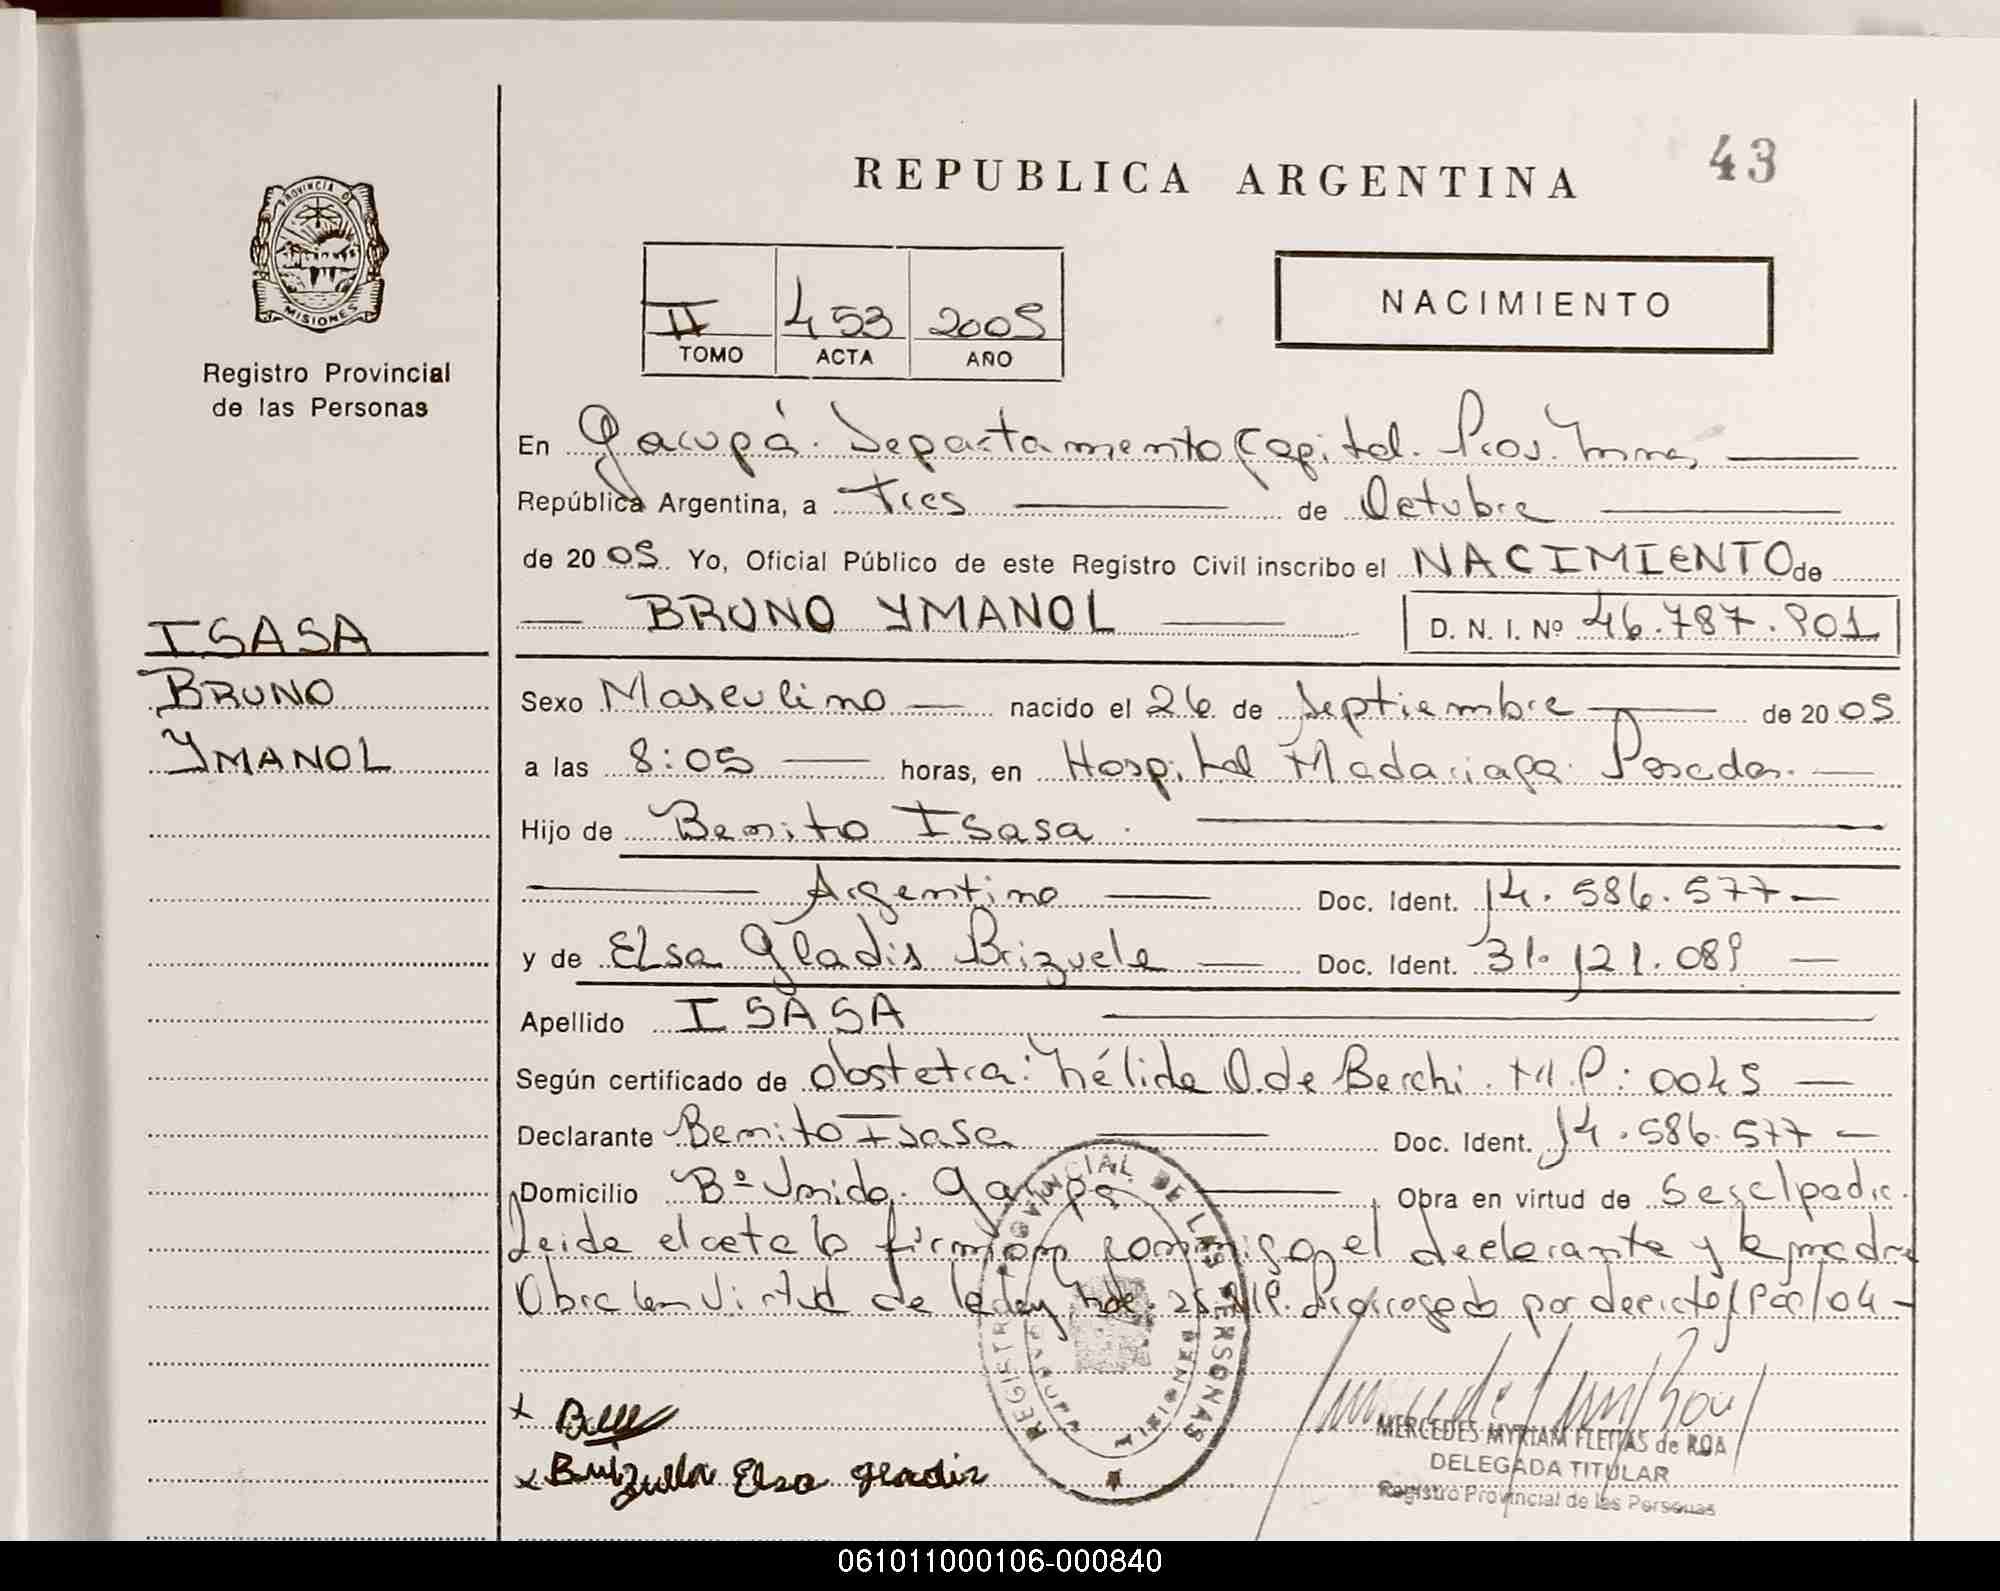 REPUBLICA ARGENTINA
43
PROVINCIA DE
MISIONES
Registro Provincial
de las Personas
II 453 2005
TOMO ACTA AÑO
NACIMIENTO
En Garupá. Departamento Capital. Prov. Mnes
República Argentina, a Tres de Octubre
de 2005 Yo, Oficial Público de este Registro Civil inscribo el NACIMIENTO de
BRUNO YMANOL D. N. I. Nº 46.787.901
ISASA
BRUNO
YMANOL
Sexo Masculino nacido el 26 de Septiembre de 2005
a las 8:05 horas, en Hospital Madariaga. Posadas.
Hijo de Benito Isasa.
Argentino Doc. Ident. 14.586.577
y de Elsa Gladis Brizuela Doc. Ident. 31.121.089
Apellido ISASA
Según certificado de obstetra: Nélida O. de Berchi. M.P: 0045
Declarante Benito Isasa Doc. Ident. 14.586.577
Domicilio Bº Unido. Garupá Obra en virtud de ser el padre.
Leída el acta la firman conmigo el declarante y la madre
Obra en virtud de la ley Nac. Prorrogado por decreto /04
REGISTRO PROVINCIAL DE LAS PERSONAS
Brizuela Elsa Gladis
MERCEDES MYRIAM FLEITAS de ROA
DELEGADA TITULAR
Registro Provincial de las Personas
061011000106-000840